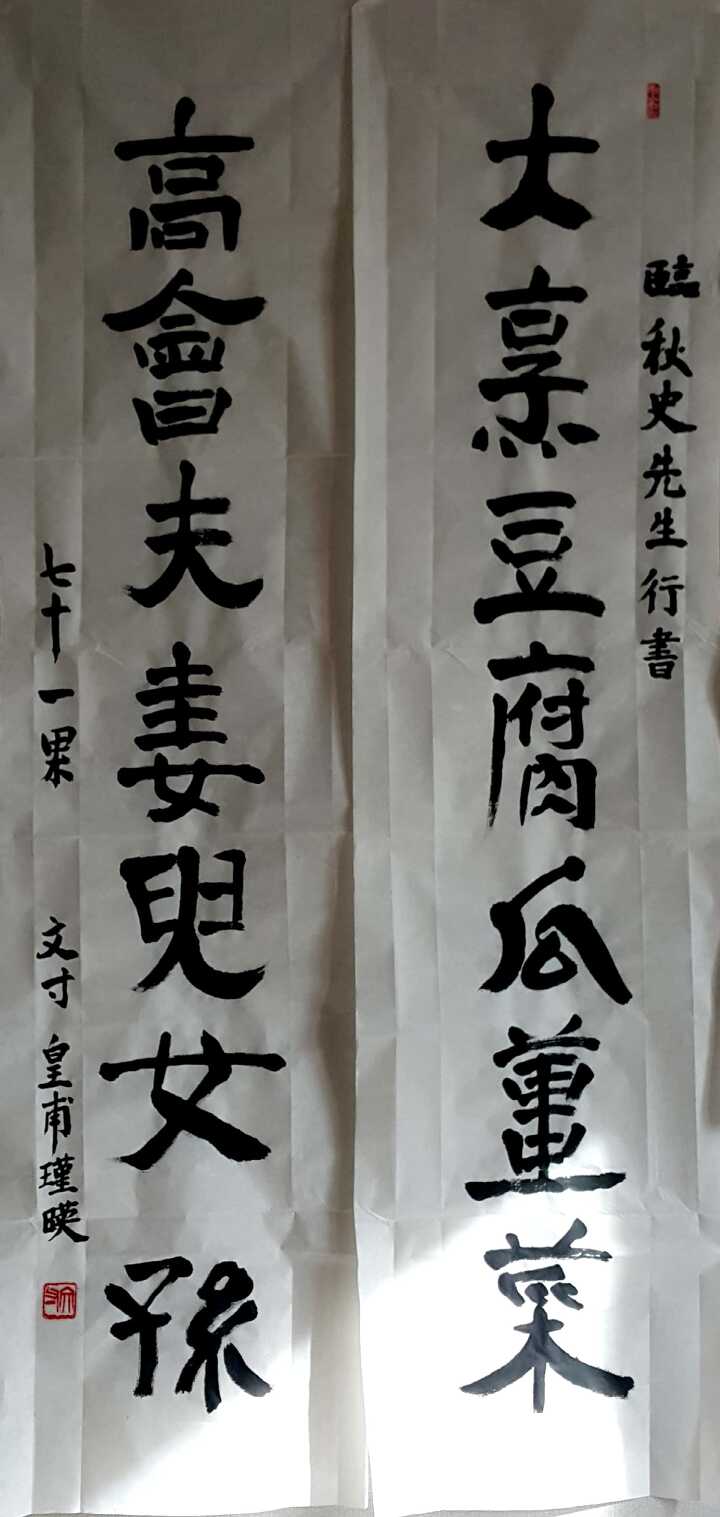 臨秋史先生行書
大烹豆腐瓜薑菜
高會夫妻兒女孫
七十一果 文寸 皇甫瑾暎